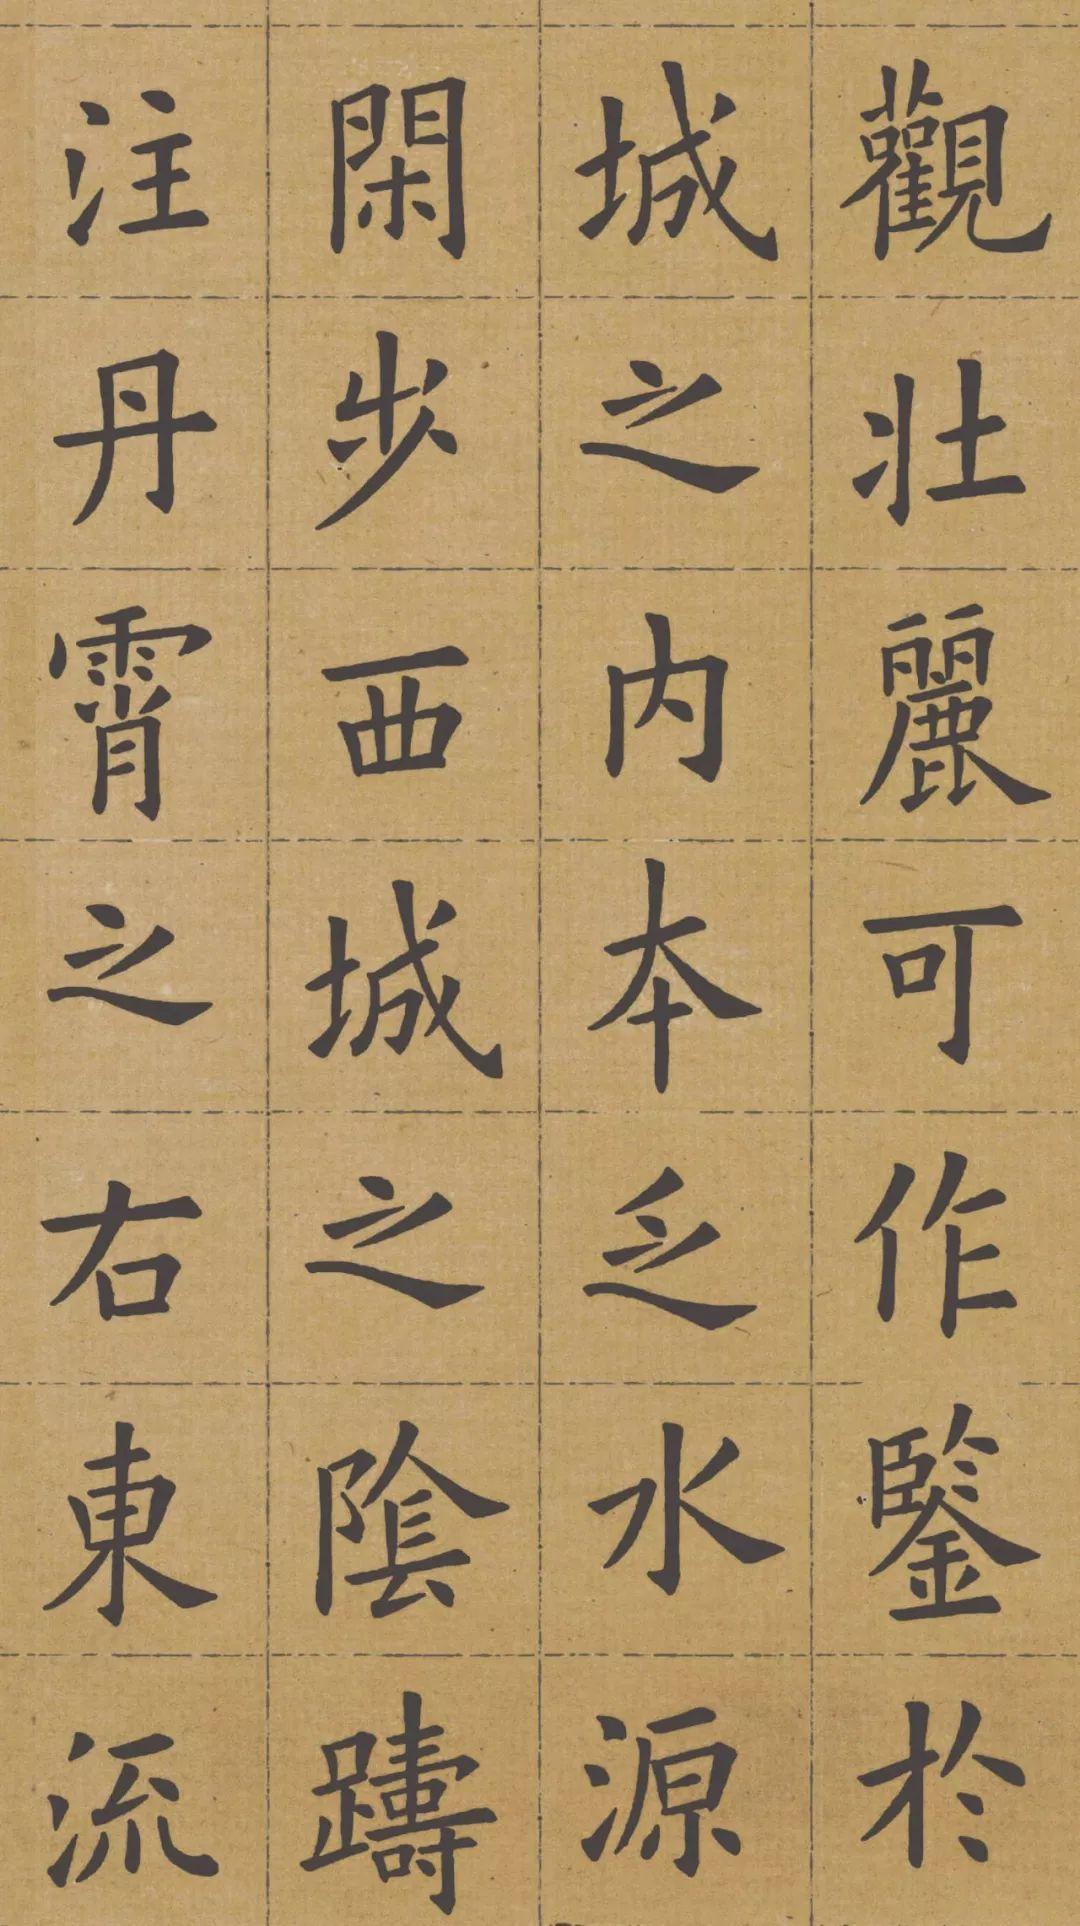 觀壯麗可作鑒於
城之内本乏水源
閑步西城之陰躊
注丹霄之右東流